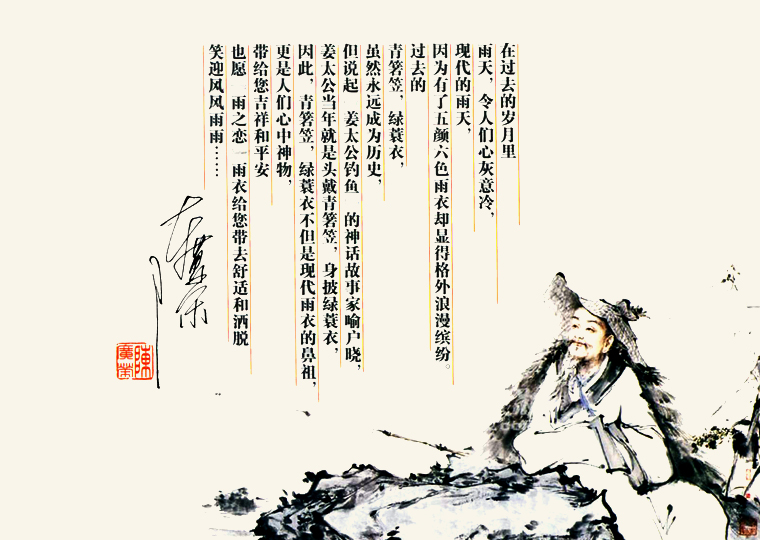 在过去的岁月里
雨天，令人们心灰意冷，
现代的雨天，
因为有了五颜六色雨衣却显得格外浪漫缤纷。
过去的
青箬笠，绿蓑衣，
虽然永远成为历史，
但说起 姜太公钓鱼 的神话故事家喻户晓，
姜太公当年就是头戴青箬笠，身披绿蓑衣，
因此，青箬笠，绿蓑衣不但是现代雨衣的鼻祖，
更是人们心中神物，
带给您吉祥和平安
也愿 雨之恋 雨衣给您带去舒适和洒脱
笑迎风风雨雨……
陈广荣